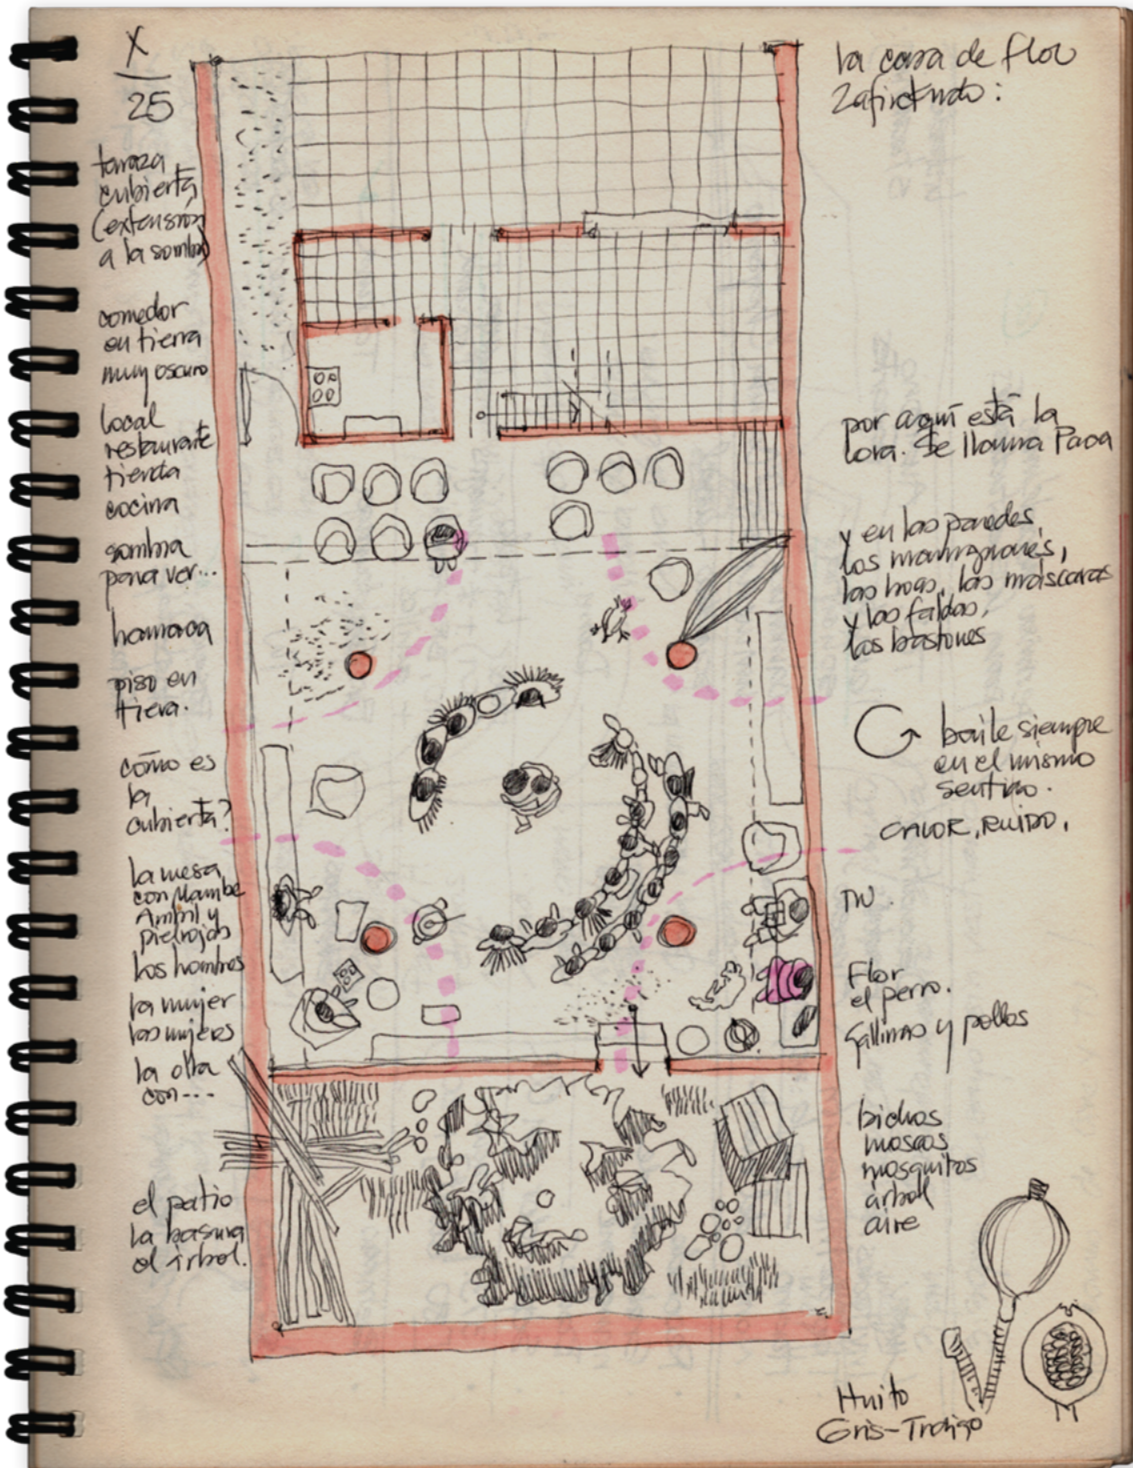 X
25
terraza
cubierta
(extensión
a la sombra)
comedor
en tierra
muy oscuro
local
restaurante
tienda
cocina
sombra
para ver...
hamaca
piso en
tierra.
cómo es
la
cubierta?
la mesa
con Mambe
Ambil y
los hombres
la mujer
las mujeres
la olla
con---
el patio
la basura
el árbol.
la casa de Flor
por aquí está la
lora. Se llama Paca
y en las paredes,
los
las hojas, las máscaras
y las faldas,
los bastones
baile siempre
en el mismo
sentido.
CALOR, RUIDO.
TV.
Flor
el perro.
gallinas y pollos
bichos
moscas
mosquitos
árbol
aire
Huito
Gris-